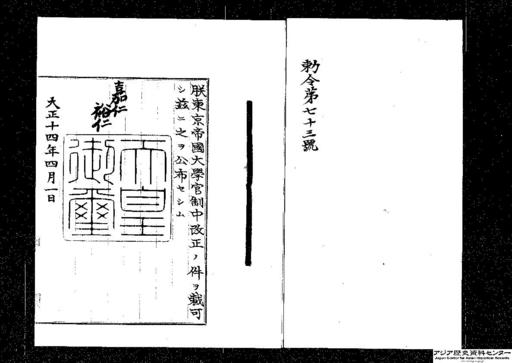 勅令第七十三號
朕東京帝國大學官制中改正ノ件ヲ裁可
シ茲ニ之ヲ公布セシム
嘉仁
裕仁
天皇
御璽
大正十四年四月一日
アジア歴史資料センター
Japan Center for Asian Historical Records